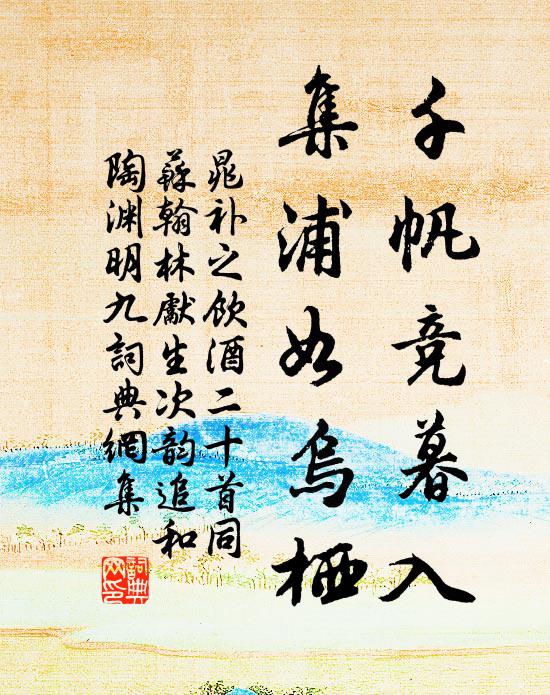 千帆竞暮入
集浦如乌栖
晁补之饮酒二十首同
苏翰林献生次韵追和
陶渊明九词典网集
词典
网印